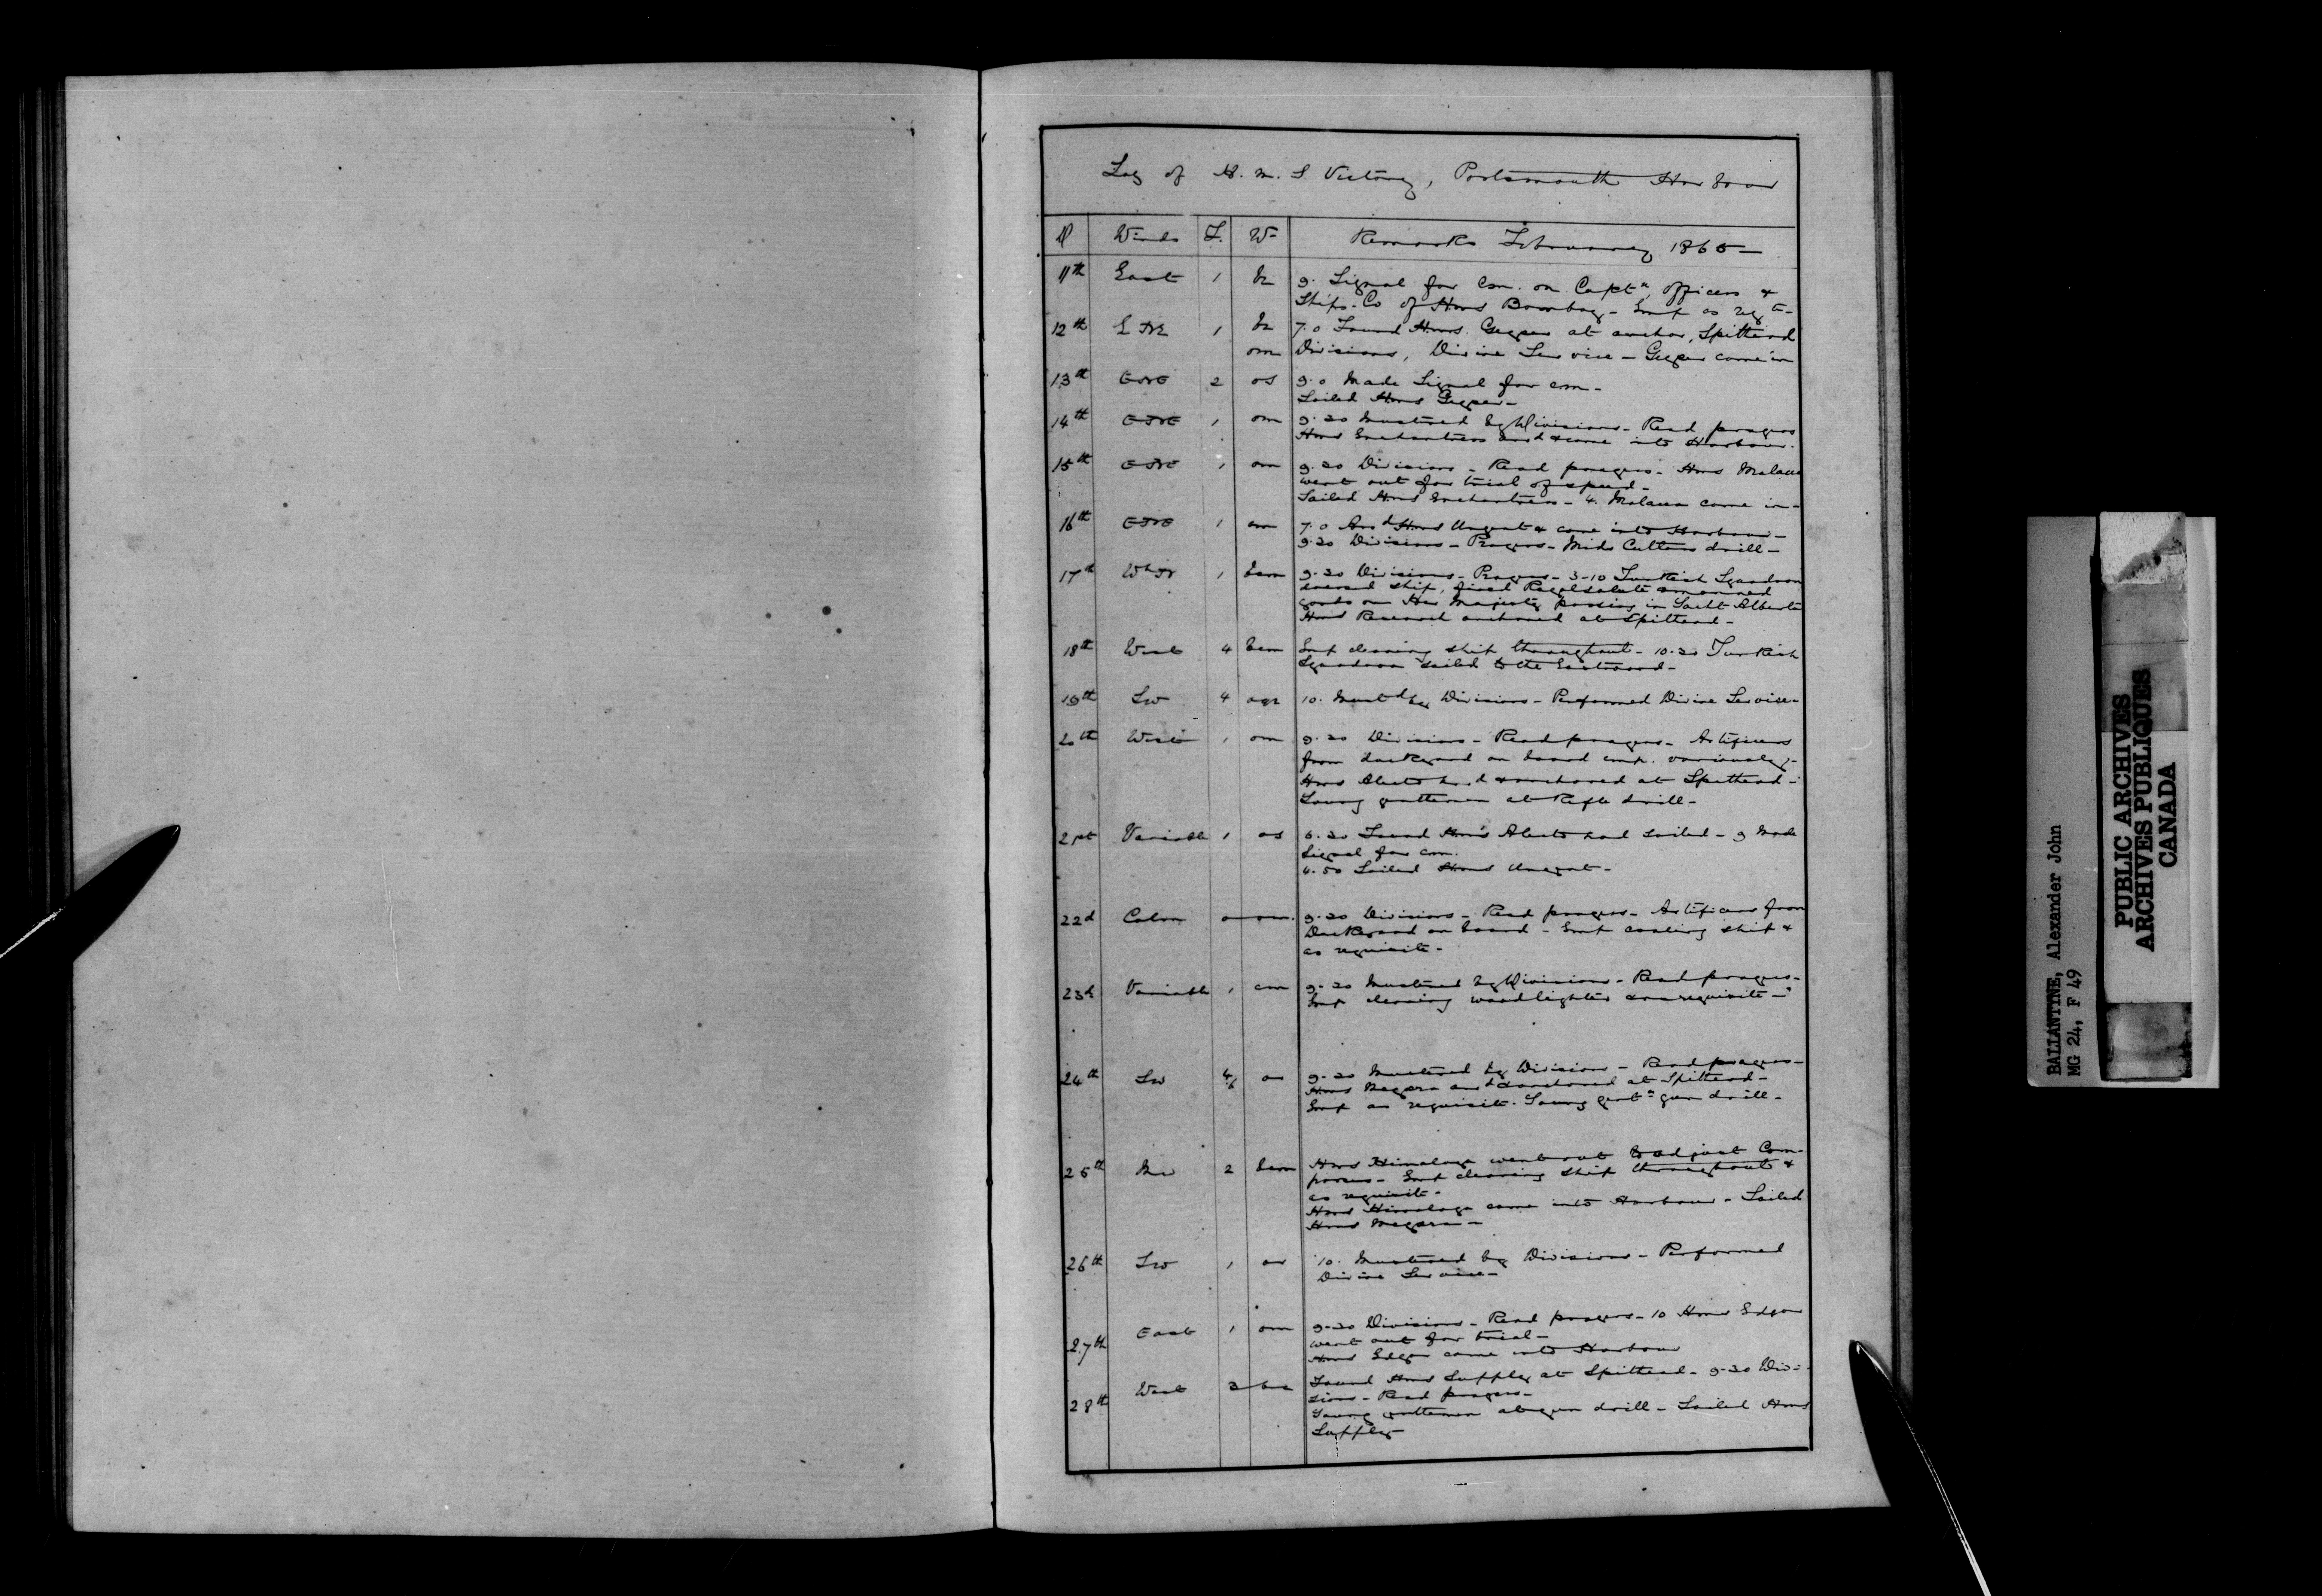 Log of H. M. S Victory, Portsmouth Harbour
D Winds F. Wr Remarks February 1865 —
11th East 1 9. Signal for Com. on Captn, officers &
Ships Co of Hms Bombay - Emp as reqte-
12th 1 7.0 Found Hms. Geyser at anchor, Spithead
om Divisions, Divine Service - Geyser came in
13th ENE 2 os 9.0 Made Signal for com-
Sailed Hms Geyser-
14th ENE 1 om 9.30 Mustered by Divisions - Read prayers
Hms Enchantress arrd & came into Harbour.
15th ENE 1 om 9.30 Divisions - Read prayers - Hms Malacca
went out for trial of speed -
Sailed Hms Enchantress - 4. Malacca came in -
16th ENE 1 om 7.0 Arrd Hms Urgent & came into Harbour -
9.30 Divisions - Prayers - Mids Cutlass drill -
17th 1 bcm 9.30 Divisions - Prayers - 3-10 Turkish Squadron
dressed ship, fired Royal salute & manned
yards on Her Majesty passing in Yacht Alberta
Hms Research anchored at Spithead -
18th West 4 bcm Emp cleaning ship throughout - 10.30 Turkish
Squadron sailed to the Eastward -
19th SW 4 oqr 10. Mustd by Divisions - Performed Divine Service -
20th West 1 om 9.30 Divisions - Read prayers - Artificers
from dockyard on board emp. variously -
Hms Alecto arrd & anchored at Spithead -
Young gentlemen at Rifle drill -
21st Variable 1 os 6.30 Found Hms Alecto had sailed - 9 Made
Signal for com.
4.50 Sailed Hms Urgent -
22d Calm o om. 9.30 Divisions - Read prayers - Artificers from
Dockyard on board - Emp coaling ship &
as requisite -
23d Variable 1 om 9.30 Mustered by Divisions - Read prayers -
Emp clearing wood lighter & as requisite -
24th SW 4/6 9.30 Mustered by Divisions - Read prayers -
Hms Megara arrd & anchored at Spithead -
Emp as requisite. Young gentn gun drill -
25th NW 2 bcm Hms Himalaya went out to adjust Com-
passes - Emp cleaning ship throughout &
as requisite -
Hms Himalaya came into Harbour - Sailed
Hms Megara -
26th SW 1 10. Mustered by Divisions - Performed
Divine Service -
27th East 1 om 9-30 Divisions - Read prayers - 10 Hms Edgar
went out for trial -
Hms Edgar came into Harbour
28th West 3 bc Found Hms Supply at Spithead - 9-30 Divi-
sions - Read prayers -
Young gentlemen at gun drill - Sailed Hms
Supply
BALLANTINE, Alexander John
MG 24, F 49
PUBLIC ARCHIVES
ARCHIVES PUBLIQUES
CANADA